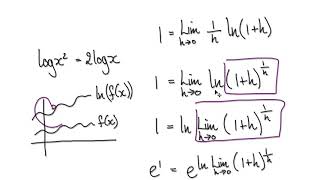 log x² = 2 log x
ln(f(x))
f(x)
1 = Lim h→0 1/h ln(1+h)
1 = Lim h→0 ln (1+h)^(1/h)
1 = ln Lim h→0 (1+h)^(1/h)
e¹ = e^(ln Lim h→0 (1+h)^(1/h))